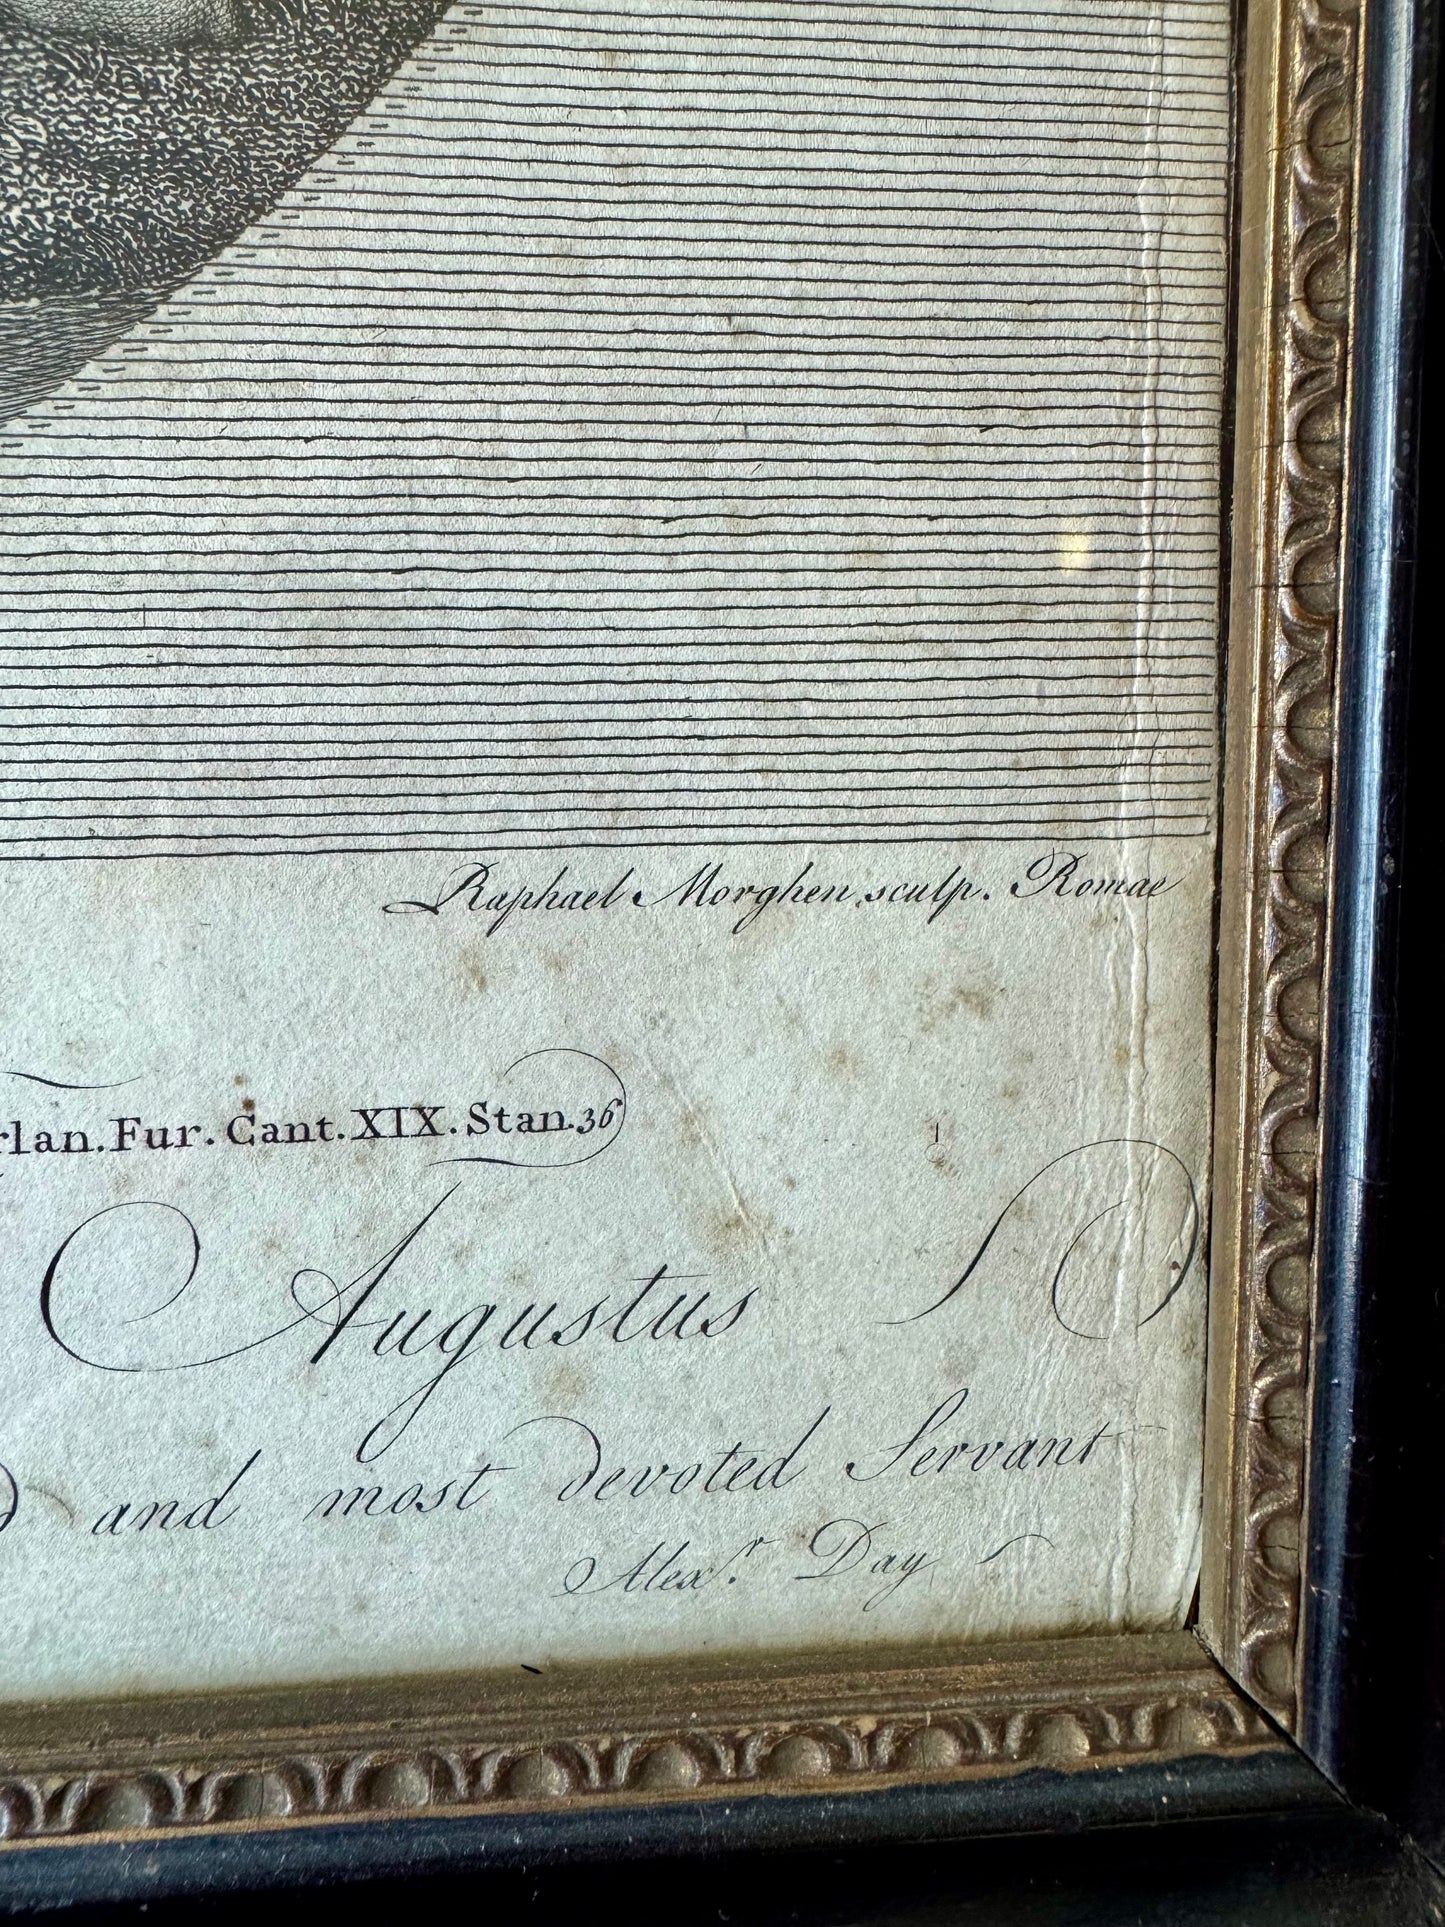 Raphael Morghen sculp. Romae
rlan. Fur. Cant. XIX. Stan. 36
Augustus
and most devoted Servant
Alex.r Day